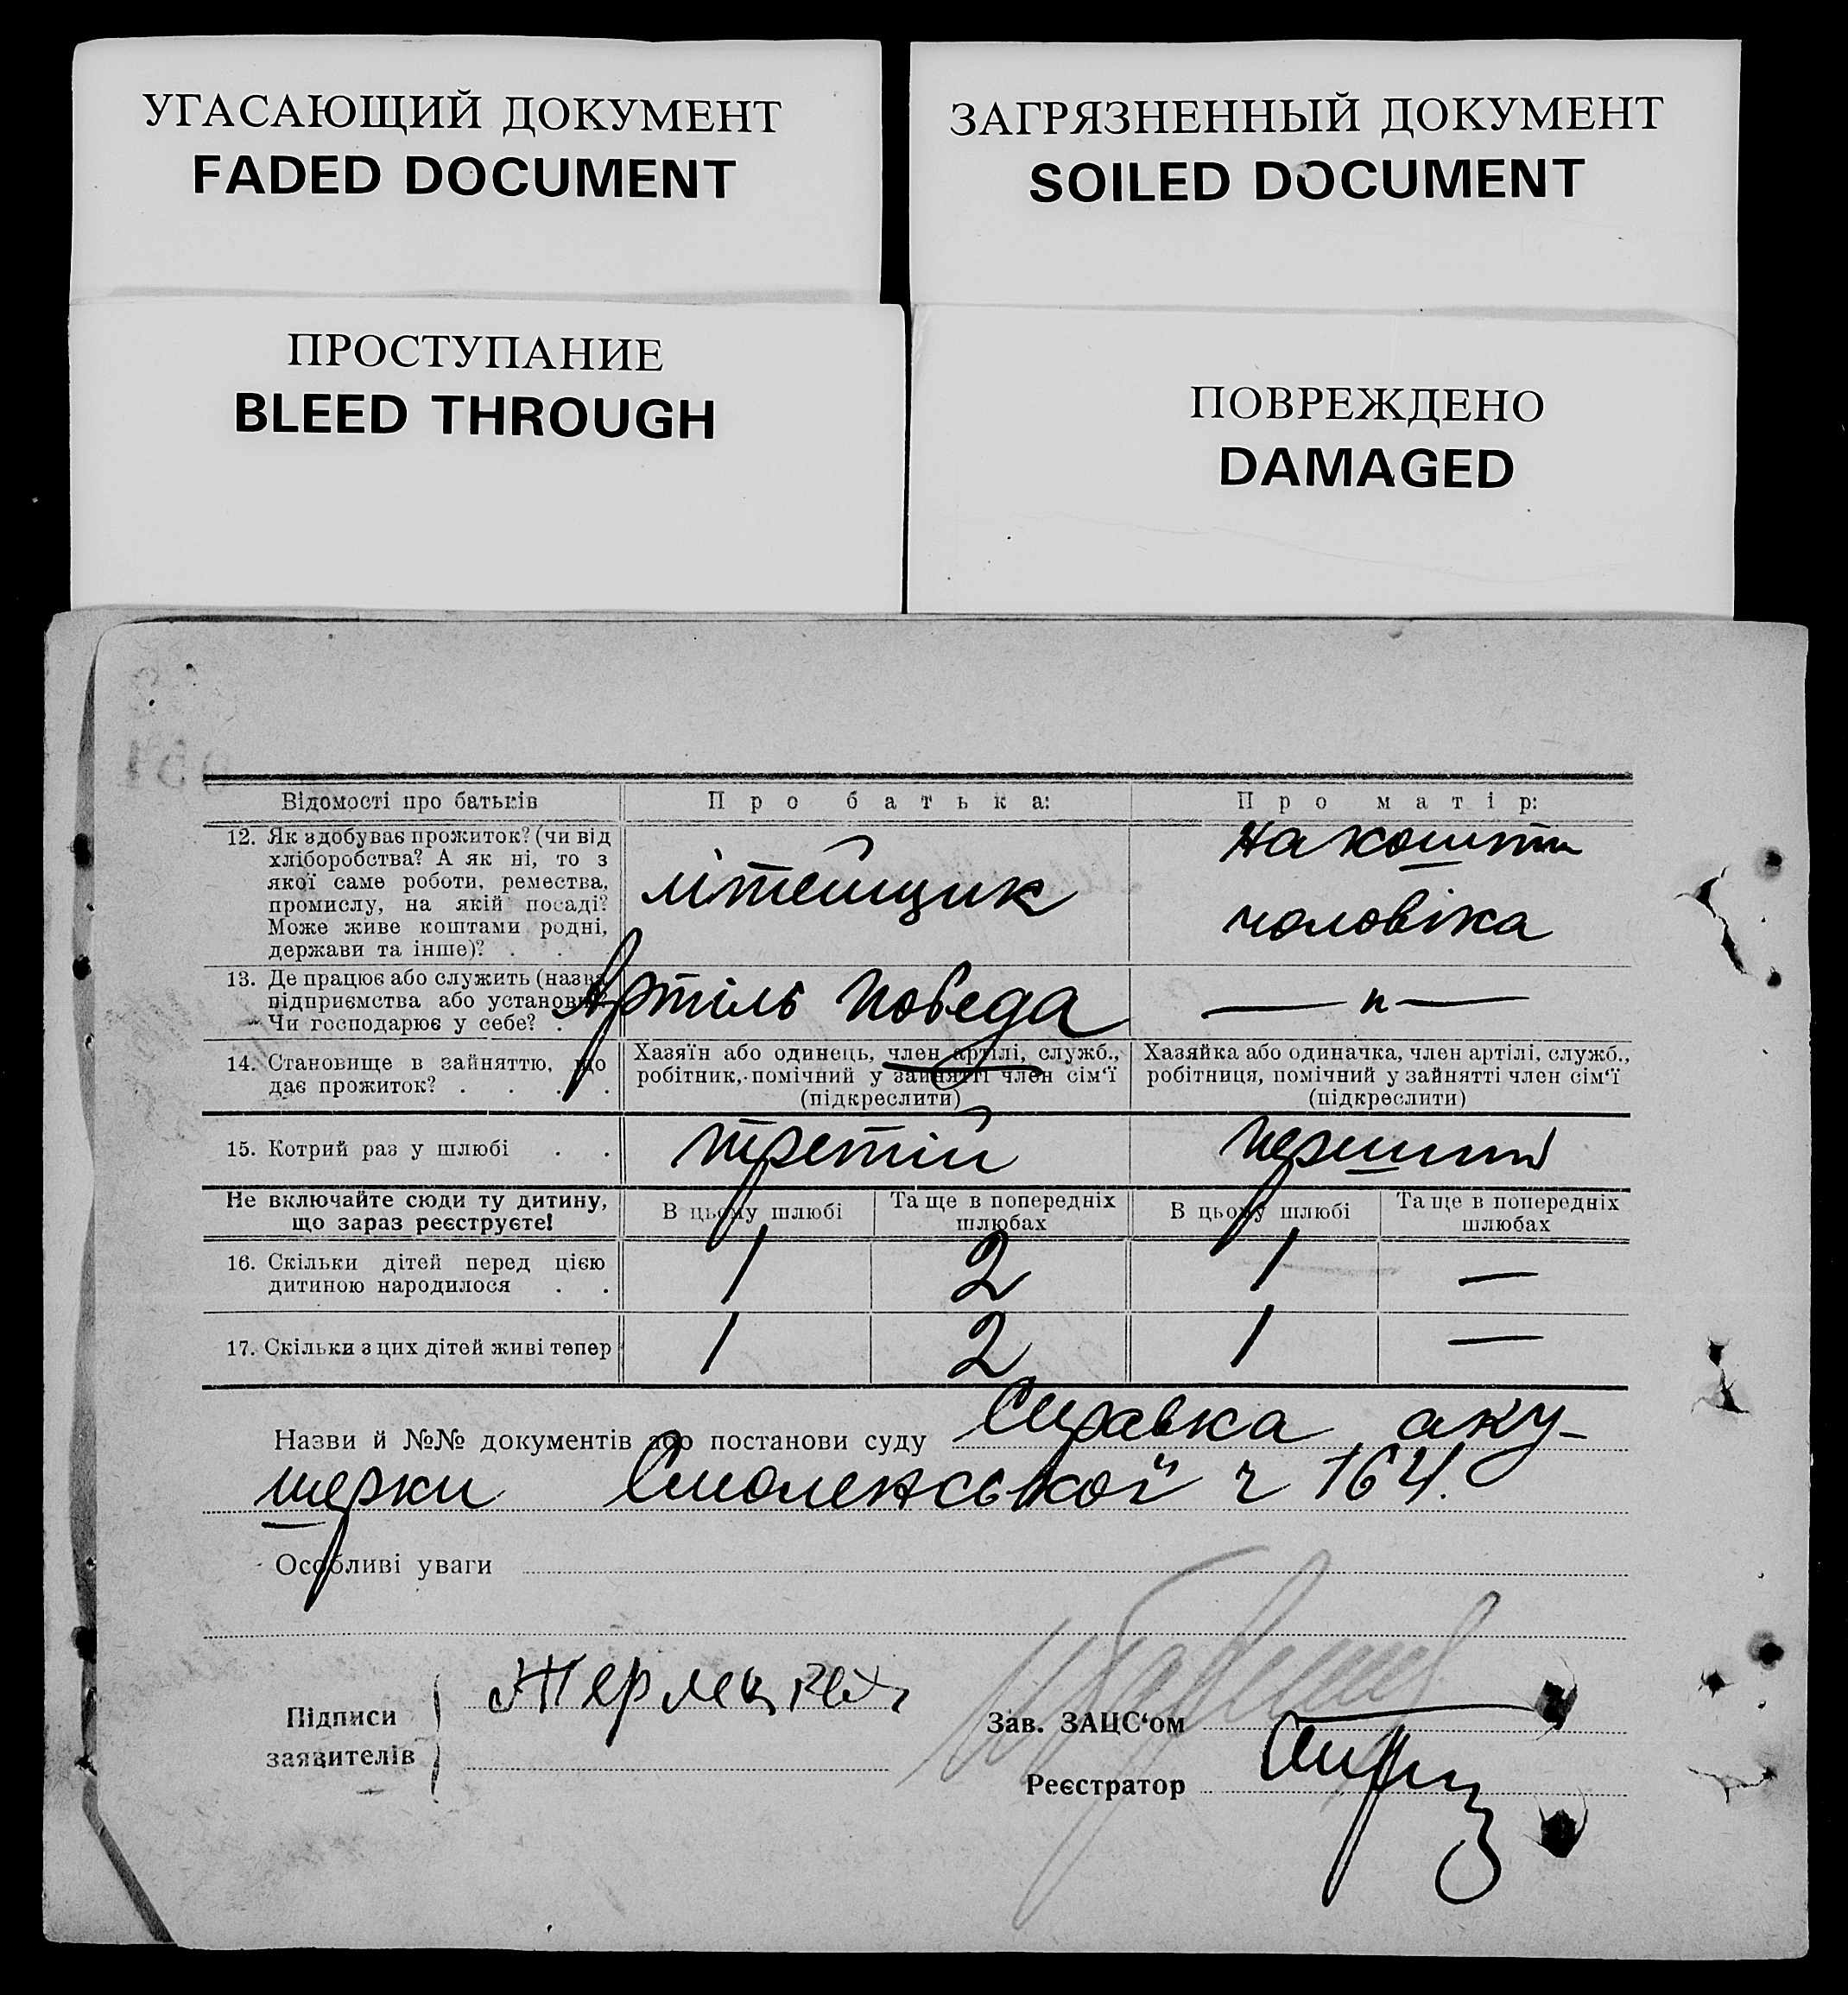 УГАСАЮЩИЙ ДОКУМЕНТ
FADED DOCUMENT
ЗАГРЯЗНЕННЫЙ ДОКУМЕНТ
SOILED DOCUMENT
ПРОСТУПАНИЕ
BLEED THROUGH
ПОВРЕЖДЕНО
DAMAGED
Відомості про батьків
Про батька:
Про матір:
12. Як здобуває прожиток? (чи від
хліборобства? А як ні, то з
якої саме роботи, ремества,
промислу, на якій посаді?
Може живе коштами родні,
держави та інше)? . .
літейщик
на кошти
чоловіка
13. Де працює або служить (назва
підприємства або установи)?
Чи господарює у себе? .
Артіль Победа
— п —
14. Становище в зайняттю, що
дає прожиток? . . . .
Хазяїн або одинець, член артілі, служб.,
робітник, помічний у зайнятті член сім‘ї
(підкреслити)
Хазяйка або одиначка, член артілі, служб.,
робітниця, помічний у зайнятті член сім‘ї
(підкреслити)
15. Котрий раз у шлюбі . .
третій
перший
Не включайте сюди ту дитину,
що зараз реєструєте!
В цьому шлюбі
Та ще в попередніх
шлюбах
В цьому шлюбі
Та ще в попередніх
шлюбах
16. Скільки дітей перед цією
дитиною народилося . .
1 2 1 —
17. Скільки з цих дітей живі тепер
1 2 1 —
Назви й №№ документів або постанови суду Справка аку-
шерки Смоленської ч 164.
Особливі уваги
Підписи
заявителів
Зав. ЗАЦС‘ом
Реєстратор